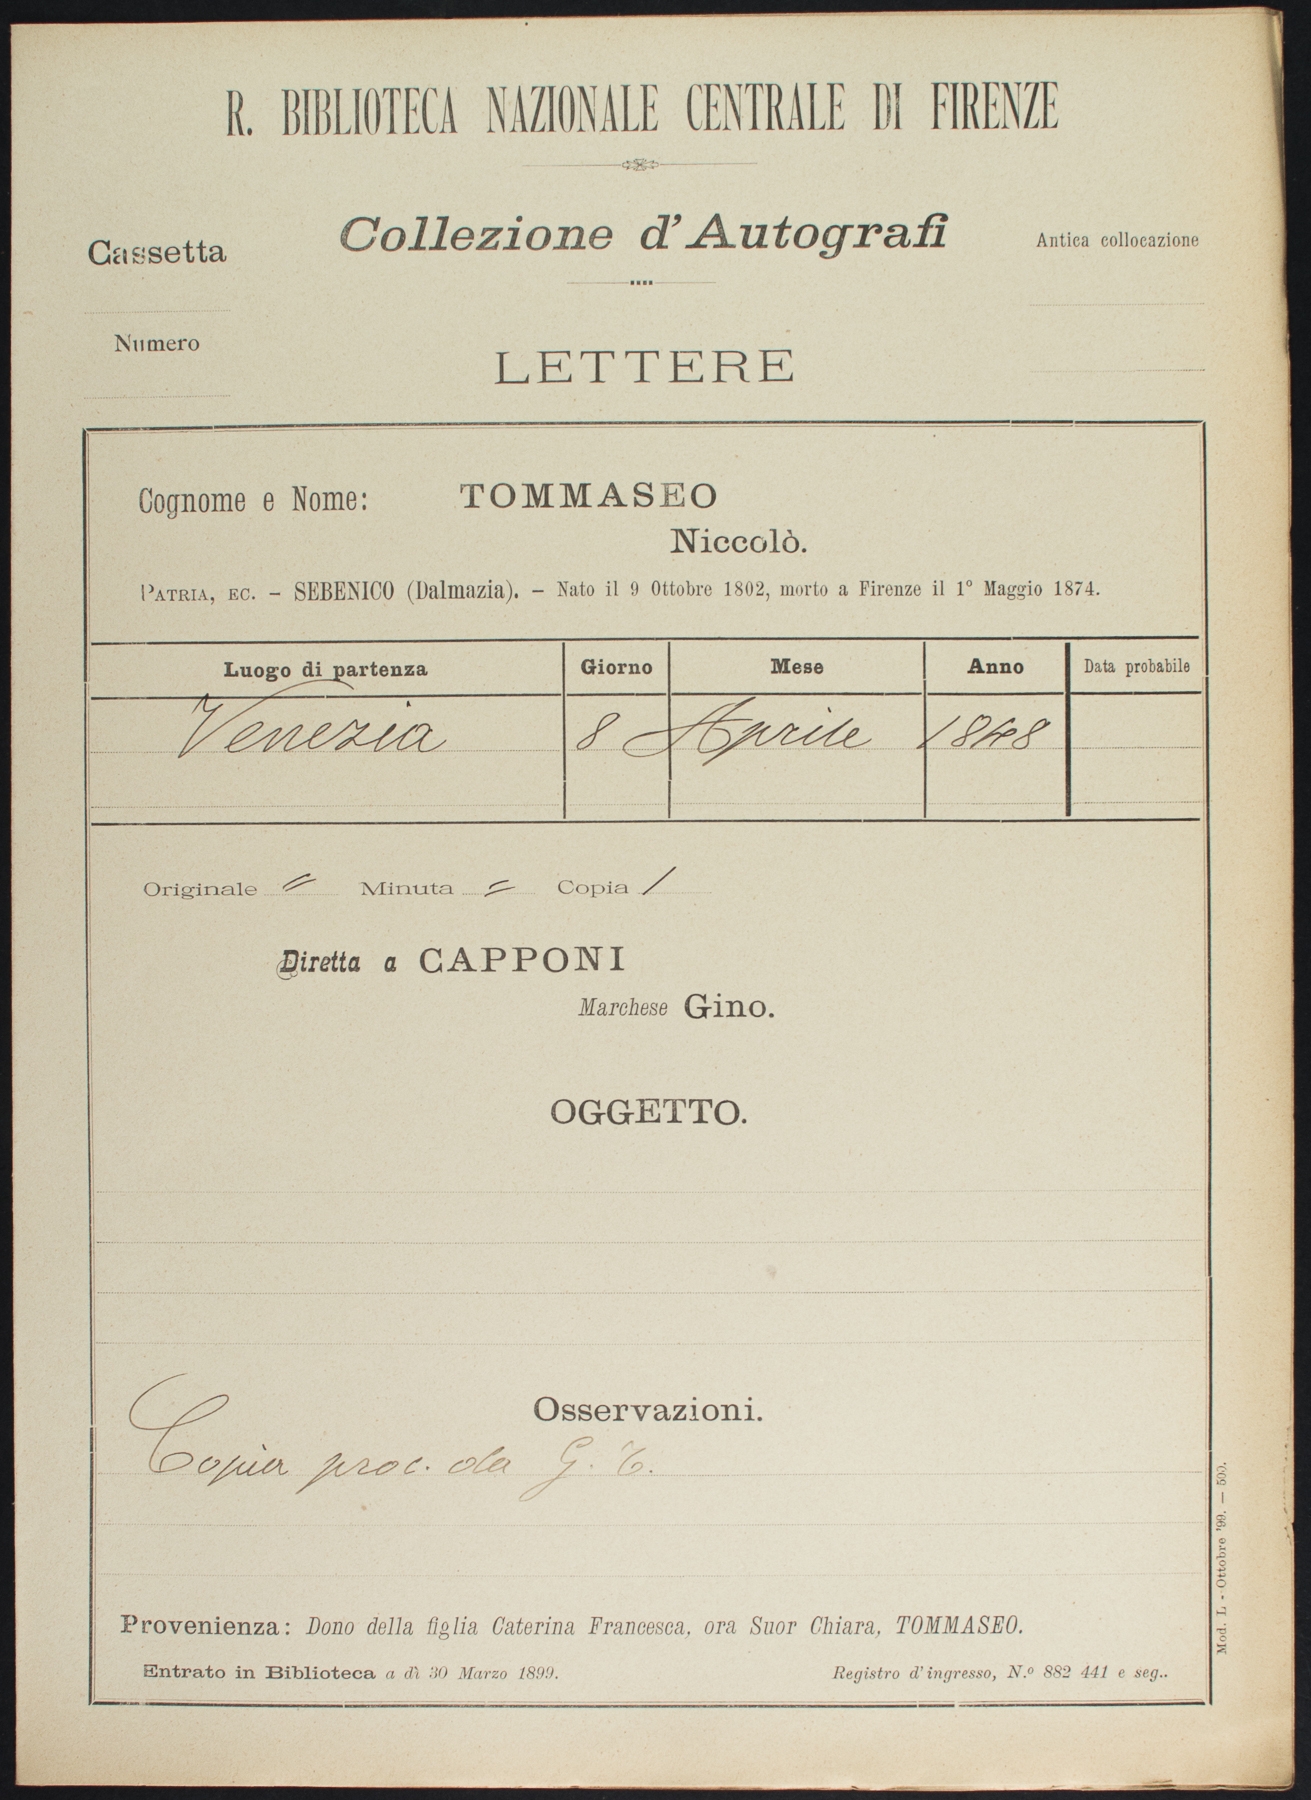 R. BIBLIOTECA NAZIONALE CENTRALE DI FIRENZE
Collezione d'Autografi
Cassetta
Antica collocazione
Numero
LETTERE
Cognome e Nome: TOMMASEO
Niccolò.
PATRIA, EC. – SEBENICO (Dalmazia). – Nato il 9 Ottobre 1802, morto a Firenze il 1° Maggio 1874.
Luogo di partenza Giorno Mese Anno Data probabile
Venezia 8 Aprile 1848
Originale = Minuta = Copia /
Diretta a CAPPONI
Marchese Gino.
OGGETTO.
Osservazioni.
Copia proc. da G. T.
Provenienza: Dono della figlia Caterina Francesca, ora Suor Chiara, TOMMASEO.
Entrato in Biblioteca a dì 30 Marzo 1899. Registro d'ingresso, N.º 882 441 e seg..
Mod. L - Ottobre '99. — 500.